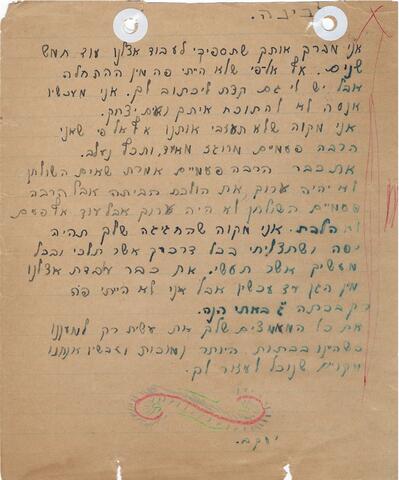 לבינה.
אני מברק אותך שתספיקי לעבוד אצלנו עוד חמש
שנים. אף אלפי שלא היתי פה מין ההתחלה
אבל יש לי גם קצת ליכתוב לך. אני מעכשיו
אנסה לא להתוכח איתך ועים יצחק.
אני מקוה שלא תעזבי אותנו אף אל פי שאני
הרבה פעמיים מרוגז מאוד, ותכף נעלב.
את כבר הרבה פעמיים אמרת שאים השולחן
לא יהיה ערוך, את הולכת הביתה אבל הרבה
פעמיים השולחן לא היה ערוך אבל עוד אף פעם
לא הלכת. אני מקוה שהחגיגה שלך תהיה
יפה ושתצליחי בכל דרכך אשר תלכי ובכל
מעשיך אשר תעשי. את כבר עובדת אצלנו
מין הגן עד עכשיו אבל אני לא הייתי פה
רק בכתה ג' באתי הנה.
את כל המאמצים שלך את עשית רק למעננו
כשהינו בכתות היותר נמוכות ועכשיו אנחנו
מקוים שנוכל לעזור לך.
יעקב.